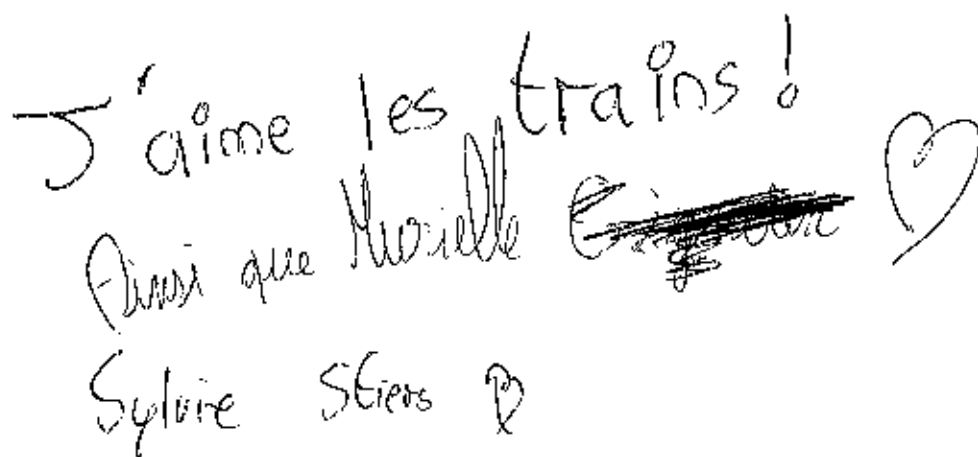 J'aime les trains!
Ainsi que Murielle
Sylvie Stiers